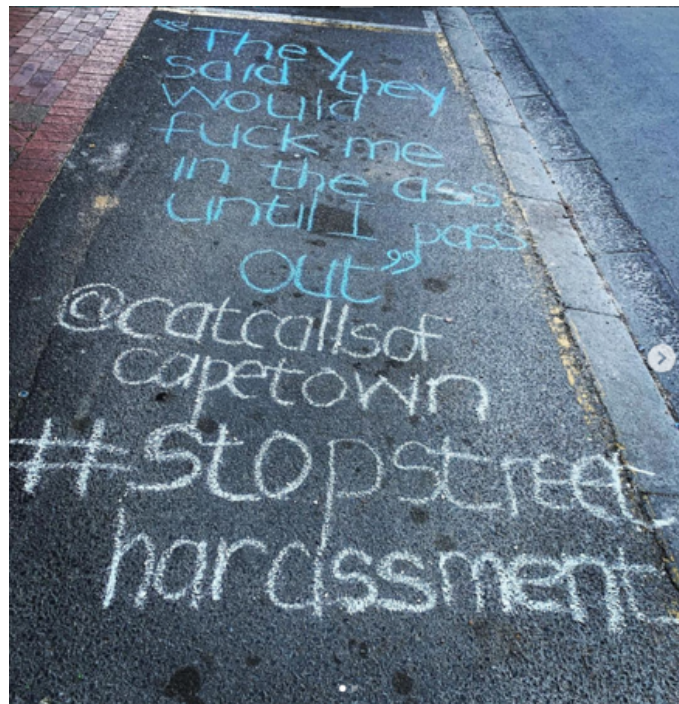 “They
said they
would
fuck me
in the ass
until I pass
out”
@catcallsof
capetown
#stopstreet
harassment